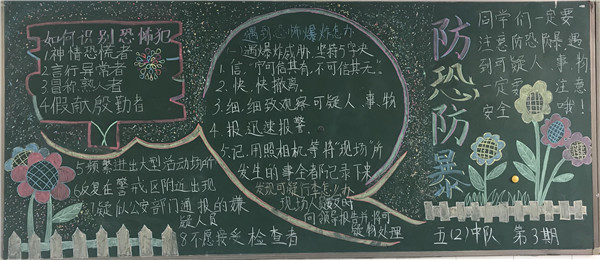 如何识别恐怖犯
1神情恐慌者
2言行异常者
3冒称熟人者
4假献殷勤者
5频繁进出大型活动场所
6反复在警戒区附近出现
7疑似公安部门通报的嫌
疑人员
8不愿接受检查者
遇到恐怖爆炸怎办
一遇爆炸威胁,坚持5字决
1.信.宁可信其有,不可信其无。
2.快.快撤离。
3.细.细致观察可疑人、事、物
4.报.迅速报警。
5.记.用照相机等将“现场”所
发生的事全者记录下来
发现可疑行李怎么办
现场人员及时
向领导报告并将可
疑物处理
防恐防暴
同学们一定要
注意防恐防暴遇
到可疑人、事、物
一定要注意
安全哦!
五(2)中队 第3期